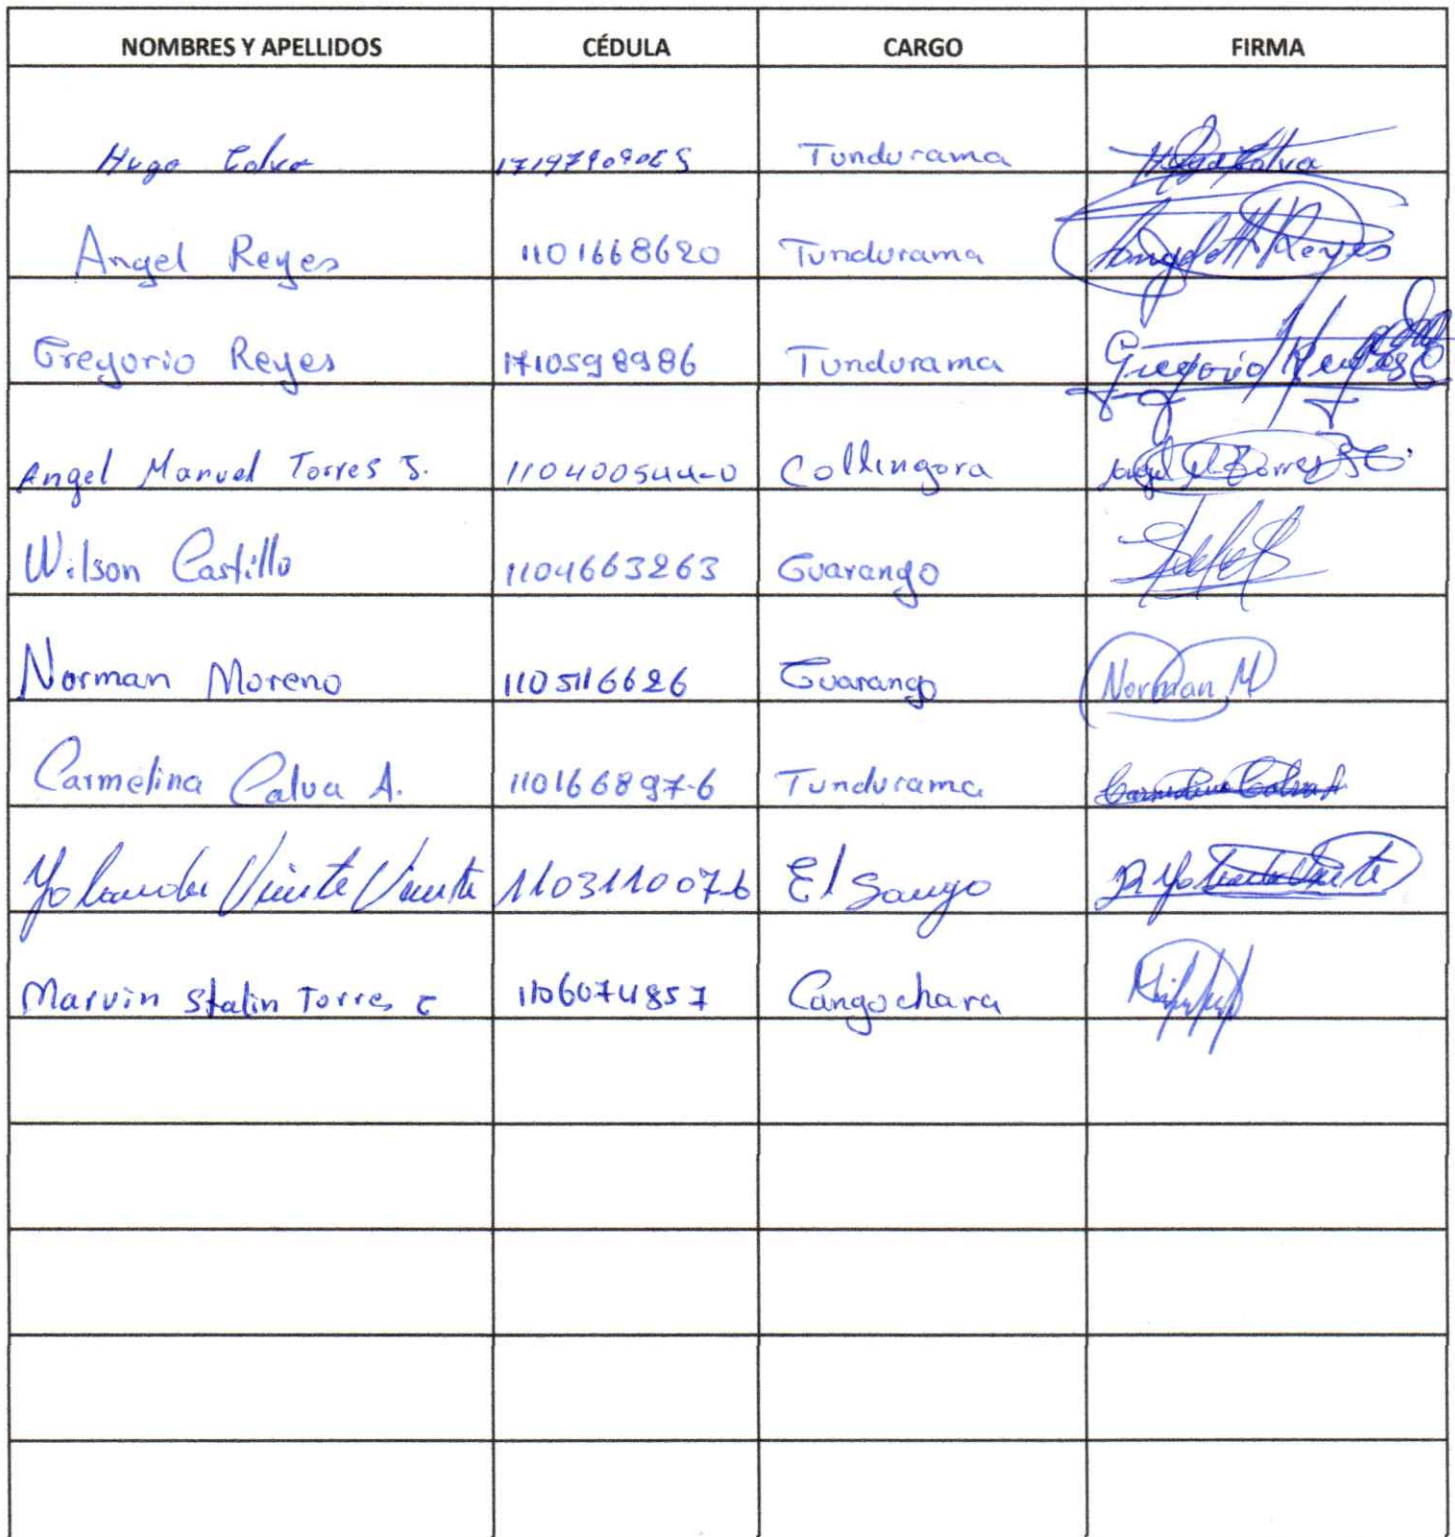 NOMBRES Y APELLIDOS CÉDULA CARGO FIRMA
Hugo Calva Tundurama Hugo Calva
Angel Reyes 1101668620 Tundurama Angel Reyes
Gregorio Reyes 1710598986 Tundurama Gregorio Reyes
Angel Manuel Torres J. 110400544-0 Collingora Angel M. Torres J
Wilson Castillo 1104663263 Guarango
Norman Moreno 110516626 Guarango Norman M
Carmelina Calva A. 110166897-6 Tundurama Carmelina Calva A
Yolanda Vicente Vicente 110311007-6 El Sango
Marvin Stalin Torres C 1106074857 Cangochara